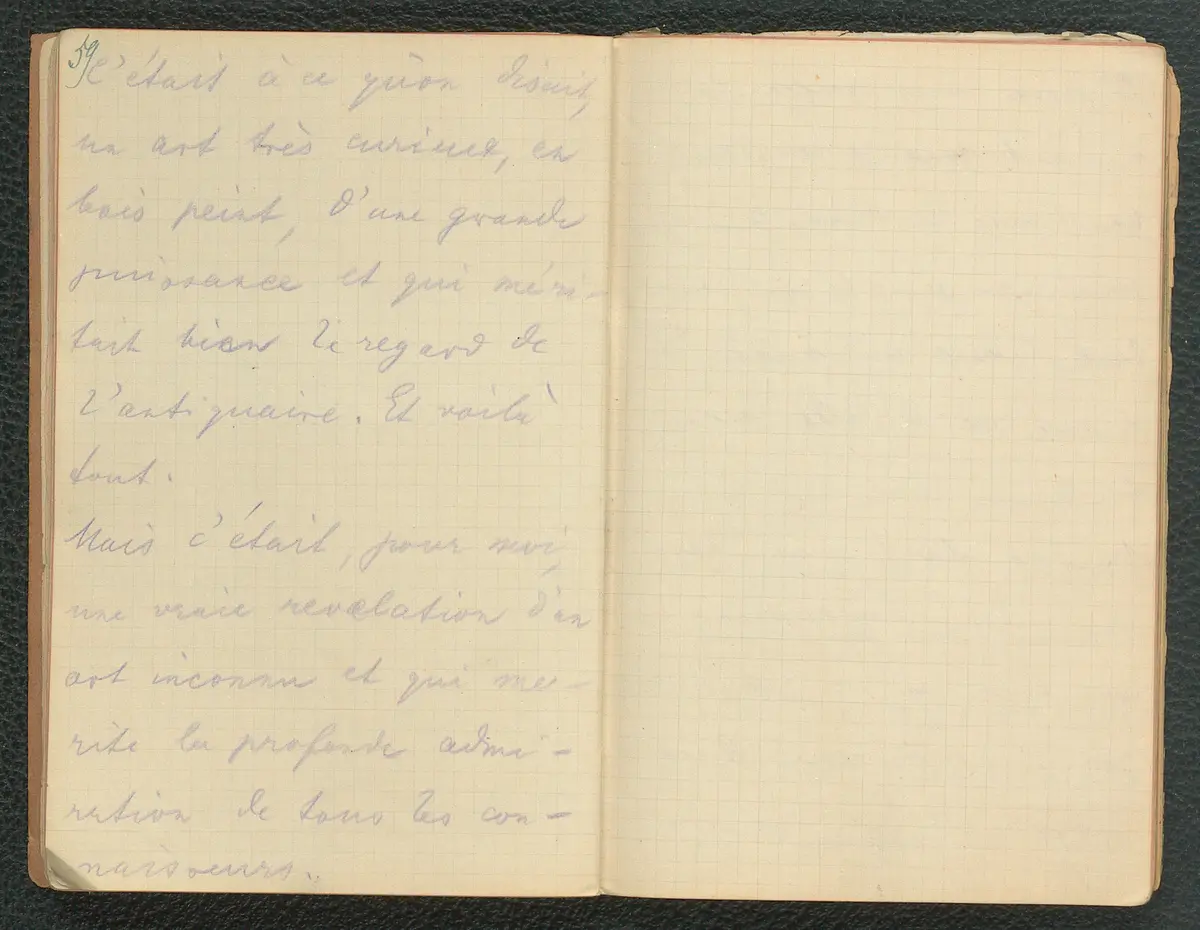 59
C'était à ce qu'on disait,
un art très curieux, en
bois peint, d'une grande
puissance et qui méri-
tait bien le regard de
l'antiquaire. Et voilà
tout.
Mais c'était, pour moi,
une vraie revelation d'un
art inconnu et qui me-
rite la profonde admi-
ration de tous les con-
naisseurs.